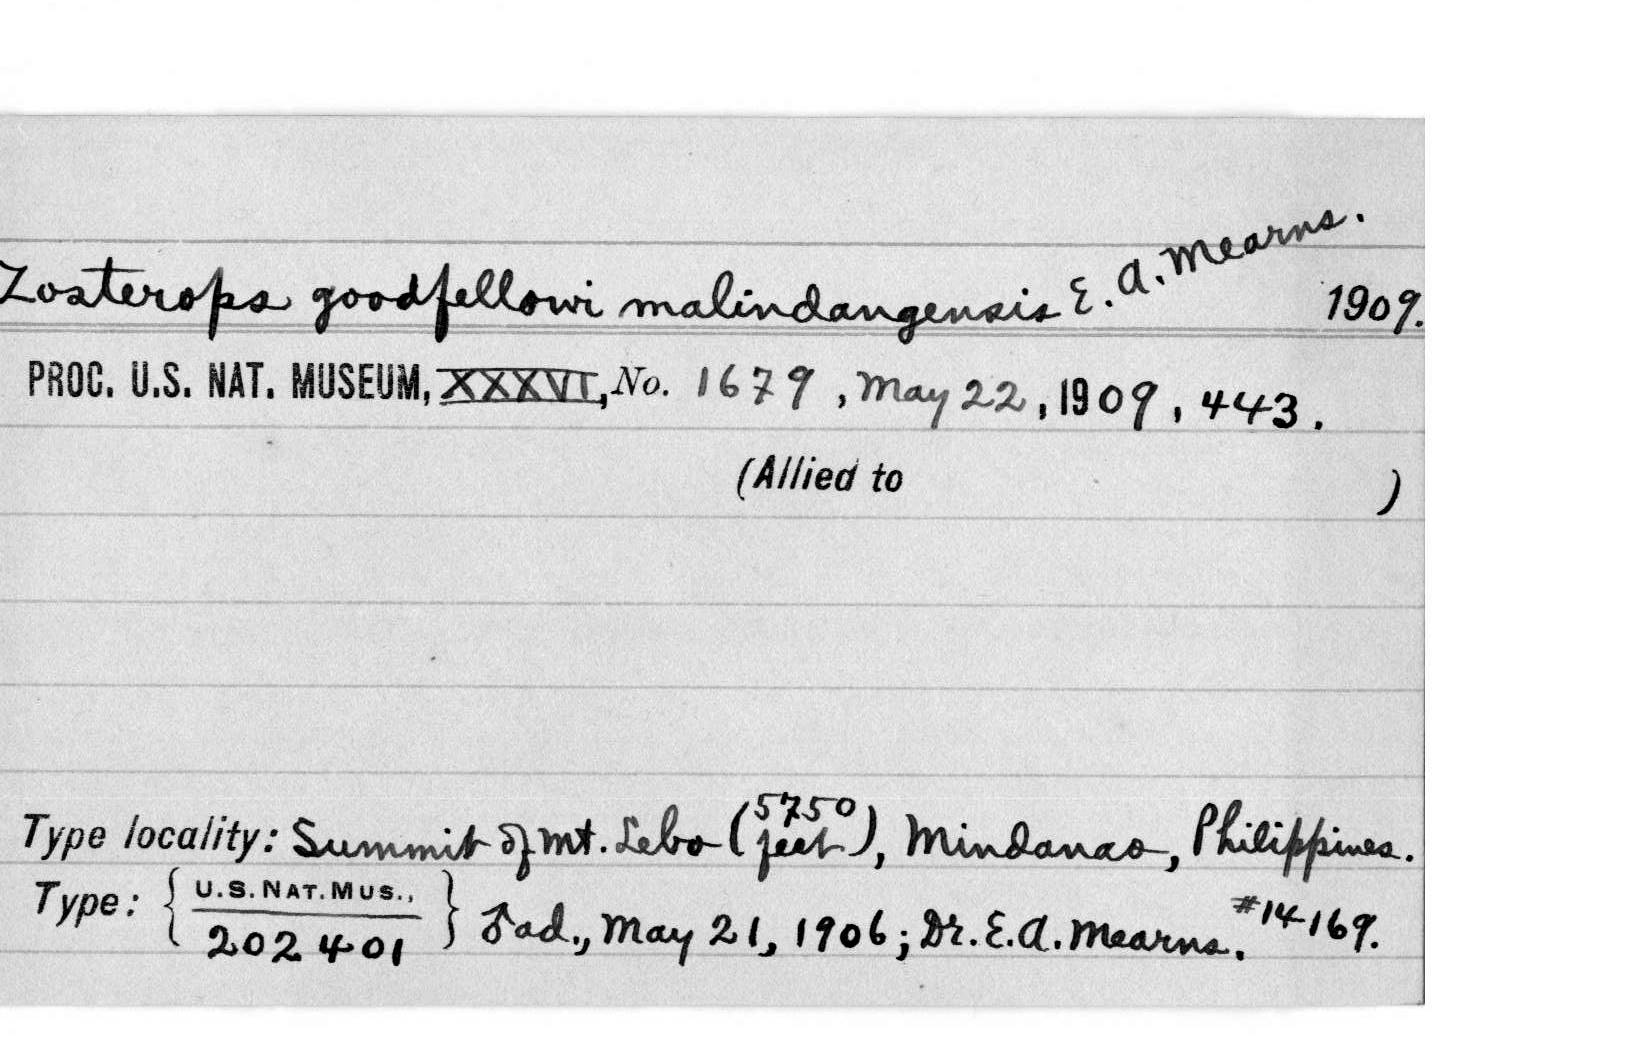 Zosterops goodfellowi malindangensis E. A. Mearns. 1909.
PROC. U.S. NAT. MUSEUM, XXXVI, No. 1679, May 22, 1909, 443.
(Allied to )
Type locality: Summit of Mt. Lebo (5750 feet), Mindanao, Philippines.
Type: { U.S. NAT. MUS., 202401 } ♂ ad., May 21, 1906; Dr. E. A. Mearns. #14169.